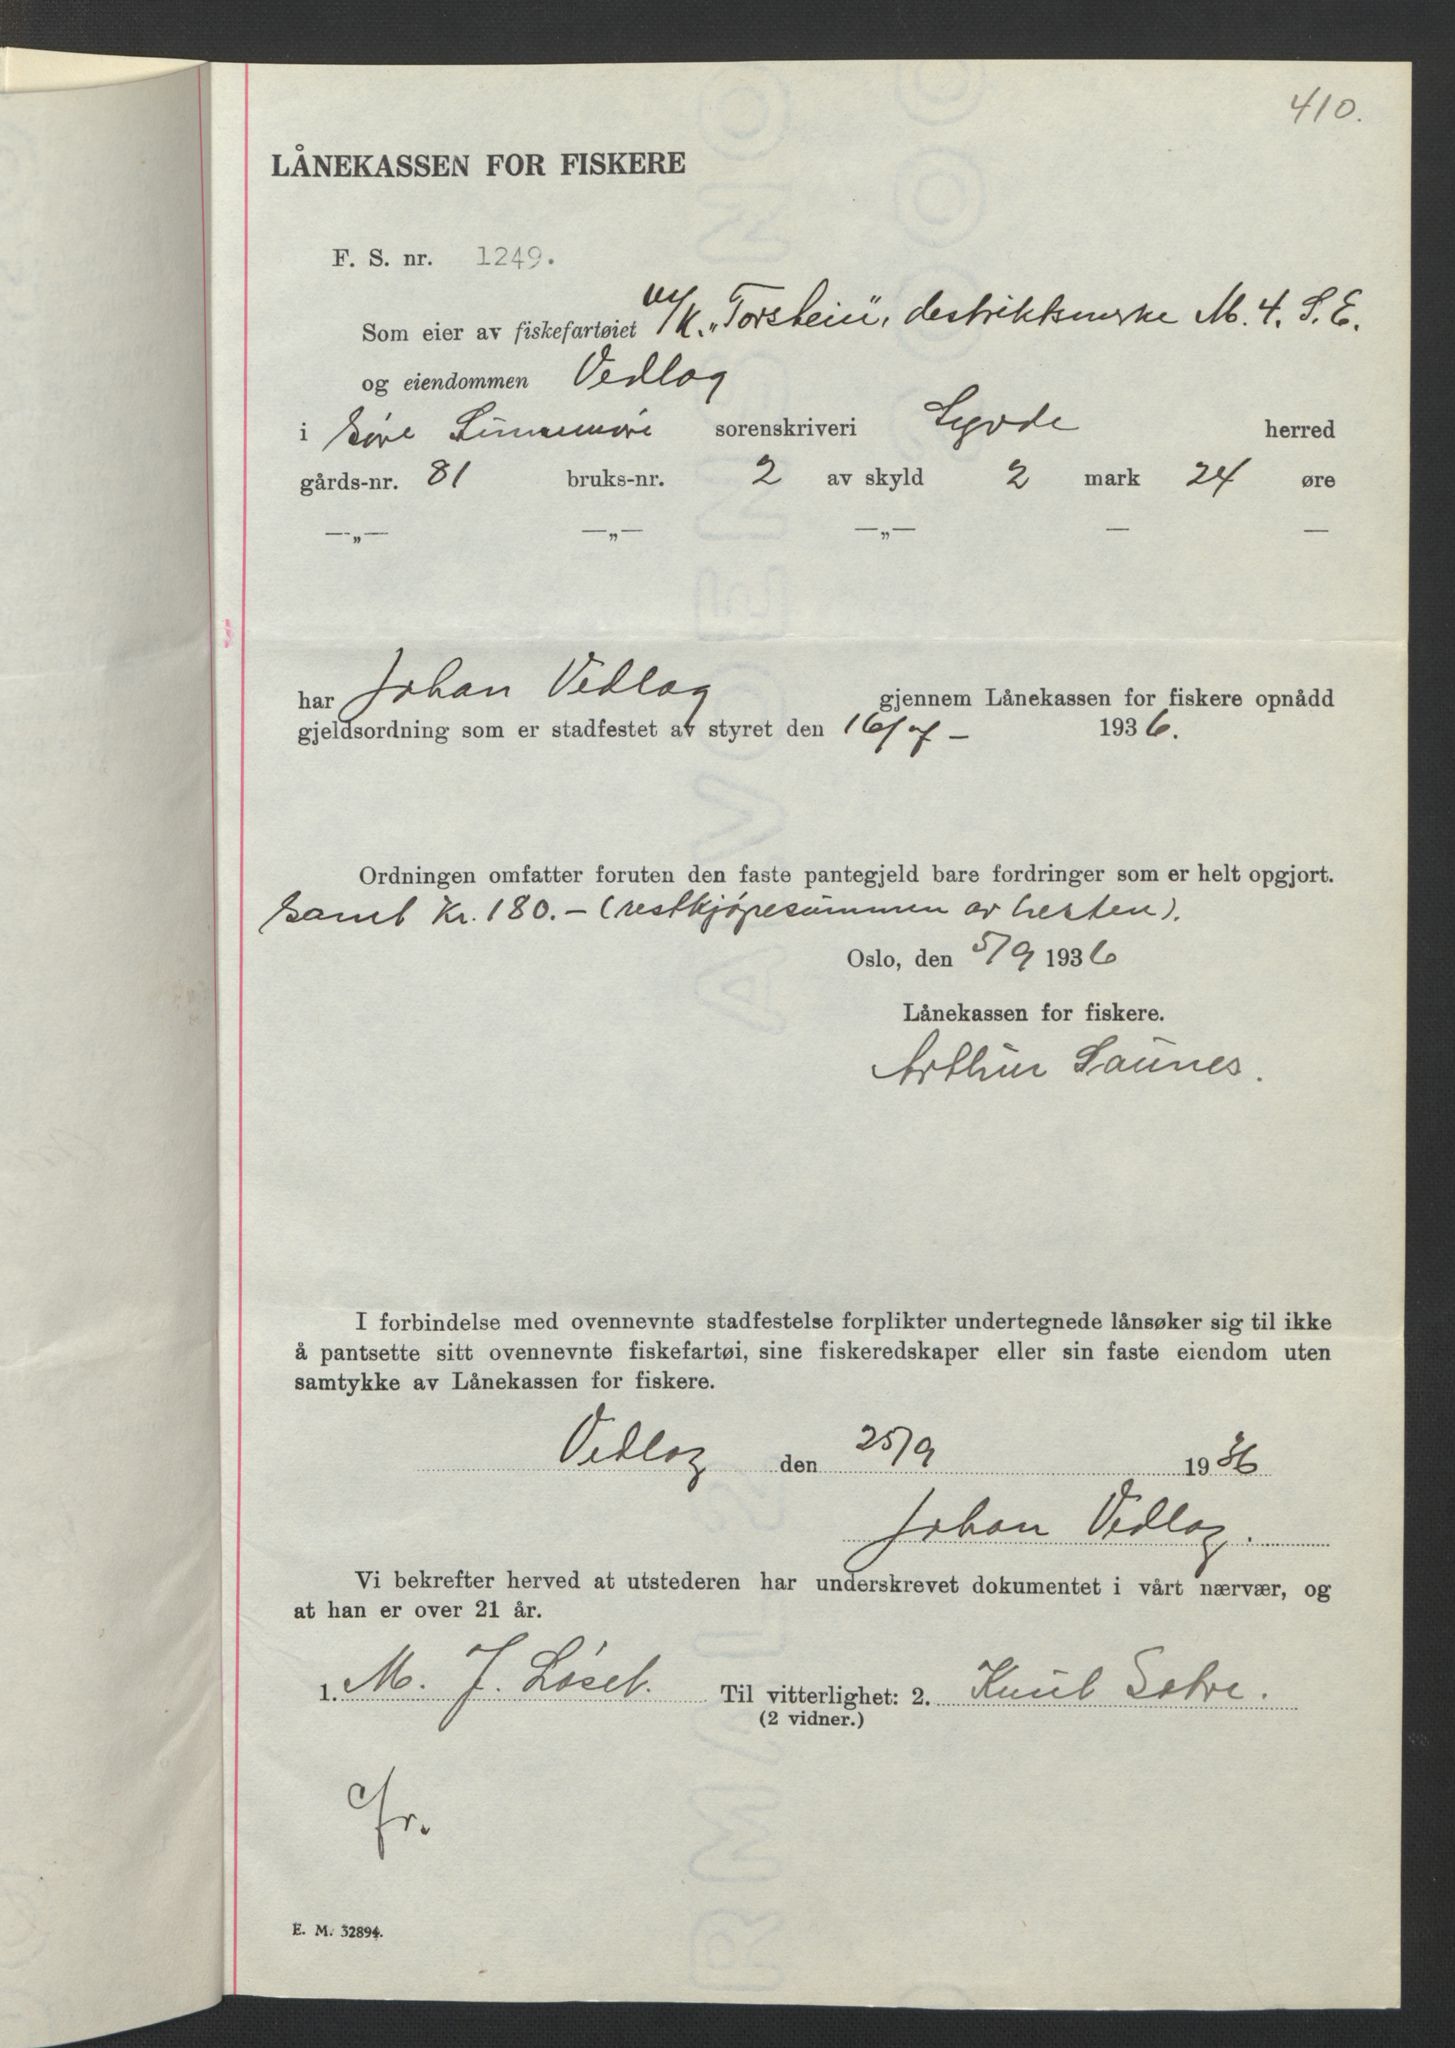 410.
LÅNEKASSEN FOR FISKERE
F. S. nr. 1249.
Som eier av fiskefartøiet M/K. „Torstein", destriktsmerke M. 4. S. E.
og eiendommen Vedlog
i Søre Sunnmøre sorenskriveri Syvde herred
gårds-nr. 81 bruks-nr. 2 av skyld 2 mark 24 øre
—„— —„— —„— — —
har Johan Vedlog gjennem Lånekassen for fiskere opnådd
gjeldsordning som er stadfestet av styret den 16/7 – 1936.
Ordningen omfatter foruten den faste pantegjeld bare fordringer som er helt opgjort.
samt Kr. 180.– (restkjøpesummen av hesten).
Oslo, den 5/9 1936
Lånekassen for fiskere.
Arthur Saunes.
I forbindelse med ovennevnte stadfestelse forplikter undertegnede lånsøker sig til ikke
å pantsette sitt ovennevnte fiskefartøi, sine fiskeredskaper eller sin faste eiendom uten
samtykke av Lånekassen for fiskere.
Vedlog den 25/9 1936
Johan Vedlog.
Vi bekrefter herved at utstederen har underskrevet dokumentet i vårt nærvær, og
at han er over 21 år.
1. M. J. Løset. Til vitterlighet: 2. Knut Sætre.
(2 vidner.)
E. M. 32894.